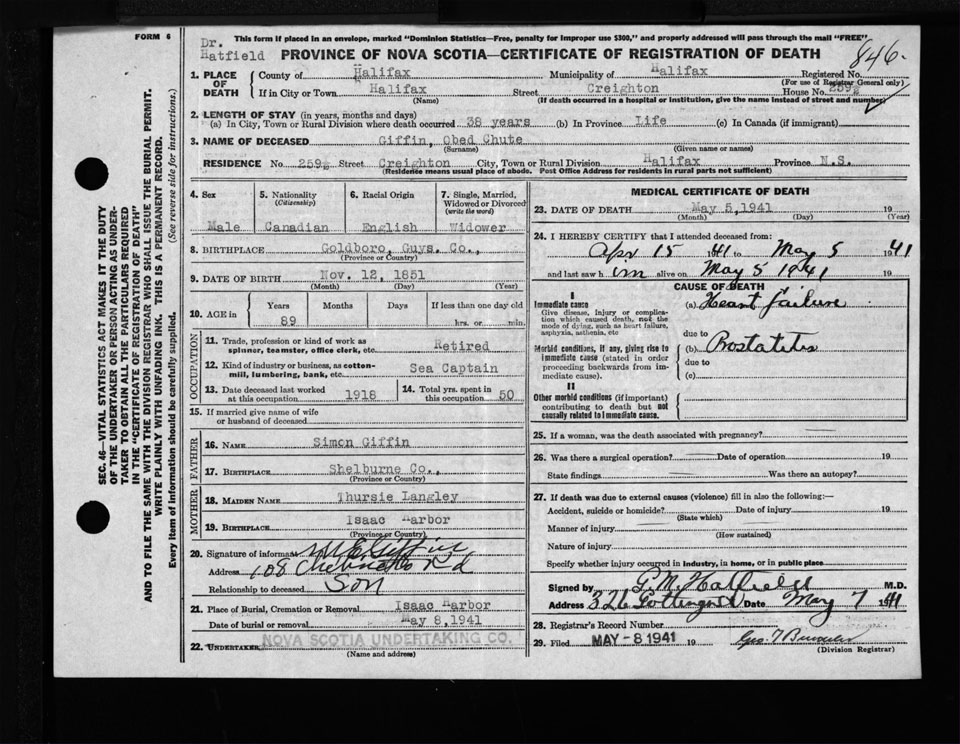 FORM 6
This form if placed in an envelope, marked "Dominion Statistics—Free, penalty for improper use $300," and properly addressed will pass through the mail "FREE"
Dr. Hatfield
PROVINCE OF NOVA SCOTIA—CERTIFICATE OF REGISTRATION OF DEATH
846.
1. PLACE OF DEATH County of Halifax Municipality of Halifax Registered No.
(For use of Registrar General only)
If in City or Town Halifax Street Creighton House No. 259½
(Name) (If death occurred in a hospital or institution, give the name instead of street and number)
2. LENGTH OF STAY (in years, months and days)
(a) In City, Town or Rural Division where death occurred 38 years (b) In Province Life (c) In Canada (if immigrant)
3. NAME OF DECEASED Giffin, Obed Chute
(Surname) (Given name or names)
RESIDENCE No. 259½ Street Creighton City, Town or Rural Division Halifax Province N.S.
(Residence means usual place of abode. Post Office Address for residents in rural parts not sufficient)
4. Sex Male
5. Nationality (Citizenship) Canadian
6. Racial Origin English
7. Single, Married, Widowed or Divorced (write the word) Widower
8. BIRTHPLACE Goldboro, Guys. Co.,
(Province or Country)
9. DATE OF BIRTH Nov. 12, 1851
(Month) (Day) (Year)
10. AGE in Years 89 Months Days If less than one day old hrs. or min.
OCCUPATION
11. Trade, profession or kind of work as spinner, teamster, office clerk, etc. Retired
12. Kind of industry or business, as cotton-mill, lumbering, bank, etc. Sea Captain
13. Date deceased last worked at this occupation 1918
14. Total yrs. spent in this occupation 50
15. If married give name of wife or husband of deceased
FATHER
16. NAME Simon Giffin
17. BIRTHPLACE Shelburne Co.,
(Province or Country)
MOTHER
18. MAIDEN NAME Thursie Langley
19. BIRTHPLACE Isaac Harbor
(Province or Country)
20. Signature of informant Giffin
Address 108 Rd
Relationship to deceased Son
21. Place of Burial, Cremation or Removal Isaac Harbor
Date of burial or removal May 8, 1941
22. Undertaker NOVA SCOTIA UNDERTAKING CO.
(Name and address)
MEDICAL CERTIFICATE OF DEATH
23. DATE OF DEATH May 5, 1941 19
(Month) (Day) (Year)
24. I HEREBY CERTIFY that I attended deceased from:
Apr 15 1941 to May 5 1941
and last saw h im alive on May 5 1941 19
CAUSE OF DEATH
I
Immediate cause
Give disease, injury or complication which caused death, not the mode of dying, such as heart failure, asphyxia, asthenia, etc
(a) Heart failure
due to
Morbid conditions, if any, giving rise to immediate cause (stated in order proceeding backwards from immediate cause).
(b) Prostatitis
due to
(c)
II
Other morbid conditions (if important) contributing to death but not causally related to immediate cause.
25. If a woman, was the death associated with pregnancy?
26. Was there a surgical operation? Date of operation 19
State findings Was there an autopsy?
27. If death was due to external causes (violence) fill in also the following:—
Accident, suicide or homicide? Date of injury 19
(State which)
Manner of injury
(How sustained)
Nature of injury
Specify whether injury occurred in industry, in home, or in public place
Signed by G. M. Hatfield M.D.
Address 326 Gottingen St Date May 7 1941
28. Registrar's Record Number
29. Filed MAY -8 1941 19 Geo. T
(Division Registrar)
SEC. 46—VITAL STATISTICS ACT MAKES IT THE DUTY
OF THE UNDERTAKER OR PERSON ACTING AS UNDER-
TAKER TO OBTAIN ALL THE PARTICULARS REQUIRED
IN THE "CERTIFICATE OF REGISTRATION OF DEATH"
AND TO FILE THE SAME WITH THE DIVISION REGISTRAR WHO SHALL ISSUE THE BURIAL PERMIT.
WRITE PLAINLY WITH UNFADING INK. THIS IS A PERMANENT RECORD.
Every item of information should be carefully supplied. (See reverse side for instructions.)